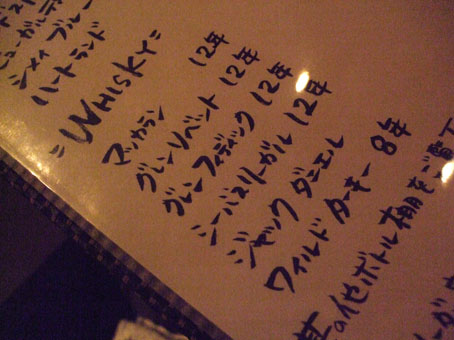 シメイ ブルー
ハートランド
"WHISKY"
マッカラン 12年
グレンリベット 12年
グレンフィディック 12年
シーバスリーガル 12年
ジャック ダニエル
ワイルド ターキー 8年
其の他ボトル棚をご覧下